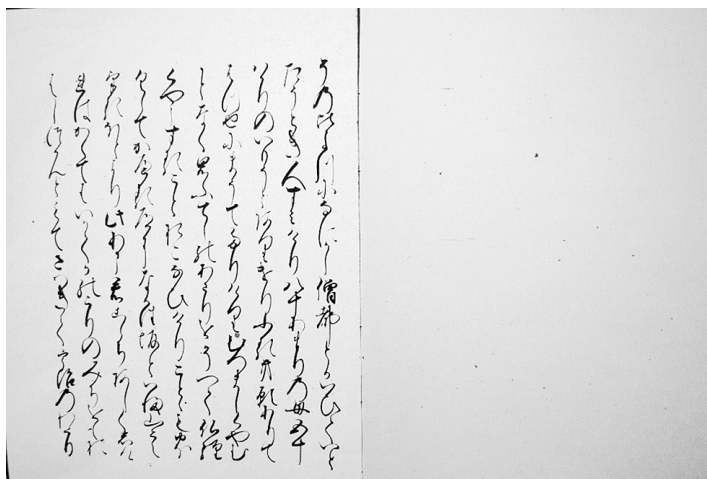 そ乃比よ川になにかし僧都とかいひていと
たうとき人すみけり八十あまり乃母五十
はかりのいもうとありけりふるき願ありて
はつせにまうてたりけりむつましくやむ
ことなく思ふてしのあさりをそへて仏経
くやうすることおこなひけりことともおほ
くしてかへる道になら坂といふ山こえ
けるほとより此はゝの尼君心ちあしくしけ
れはかくてはいかてかのこりのみちをもお
はしつかんとてさはきて宇治乃わたり